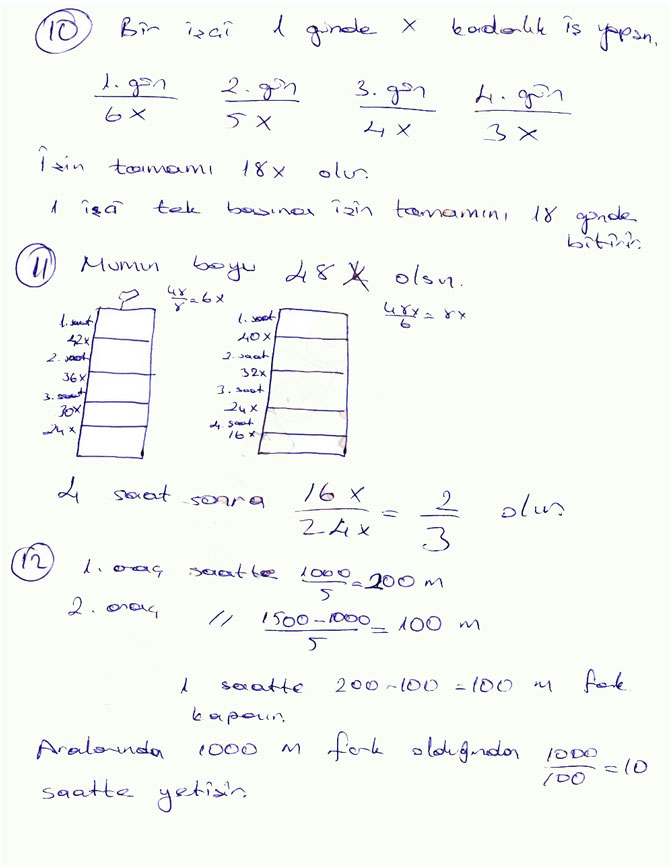 10 Bir işçi 1 günde x kadarlık iş yapsın.
1. gün 2. gün 3. gün 4. gün
6x 5x 4x 3x
İşin tamamı 18x olur.
1 işçi tek başına işin tamamını 18 günde
bitirir.
11 Mumun boyu 48x olsun.
48/8 = 6x 48x/6 = 8x
1. saat 1. saat
42x 40x
2. saat 2. saat
36x 32x
3. saat 3. saat
30x 24x
24x 4. saat
16x
4 saat sonra 16x/24x = 2/3 olur.
12 1. araç saatte 1000/5 = 200 m
2. araç // 1500-1000/5 = 100 m
1 saatte 200-100 = 100 m fark
kapanır.
Aralarında 1000 m fark olduğundan 1000/100 = 10
saatte yetişir.